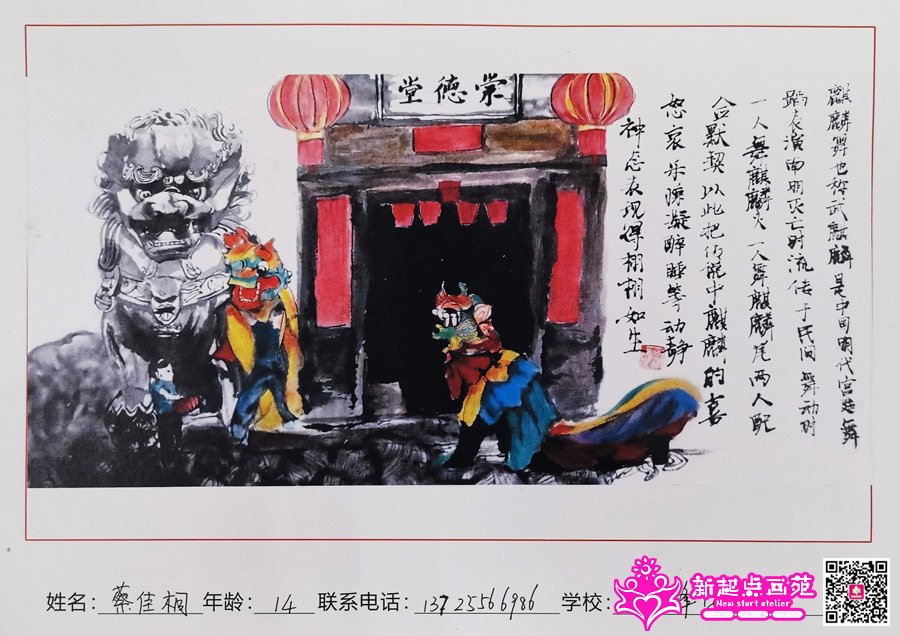 崇德堂
麒麟舞也称武麒麟是中国明代宫廷舞
蹈表演南明灭亡时流传于民间舞动时
一人舞麒麟头一人舞麒麟尾两人配
合默契以此把传说中麒麟的喜
怒哀乐惊凝醉睡等动静
神态表现得栩栩如生
姓名: 蔡佳桐 年龄: 14 联系电话: 13725566986 学校:
新起点画苑
New start atelier